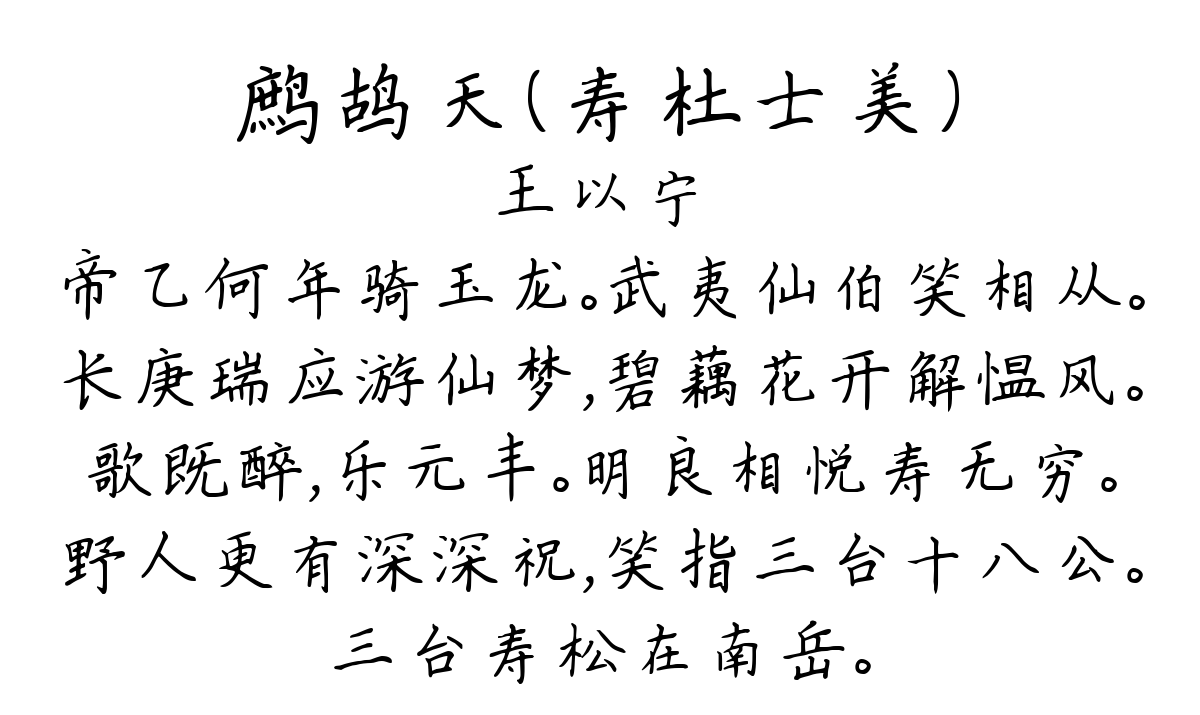 鹧鸪天(寿杜士美)
王以宁
帝乙何年骑玉龙。武夷仙伯笑相从。
长庚瑞应游仙梦,碧藕花开解愠风。
歌既醉,乐元丰。明良相悦寿无穷。
野人更有深深祝,笑指三台十八公。
三台寿松在南岳。